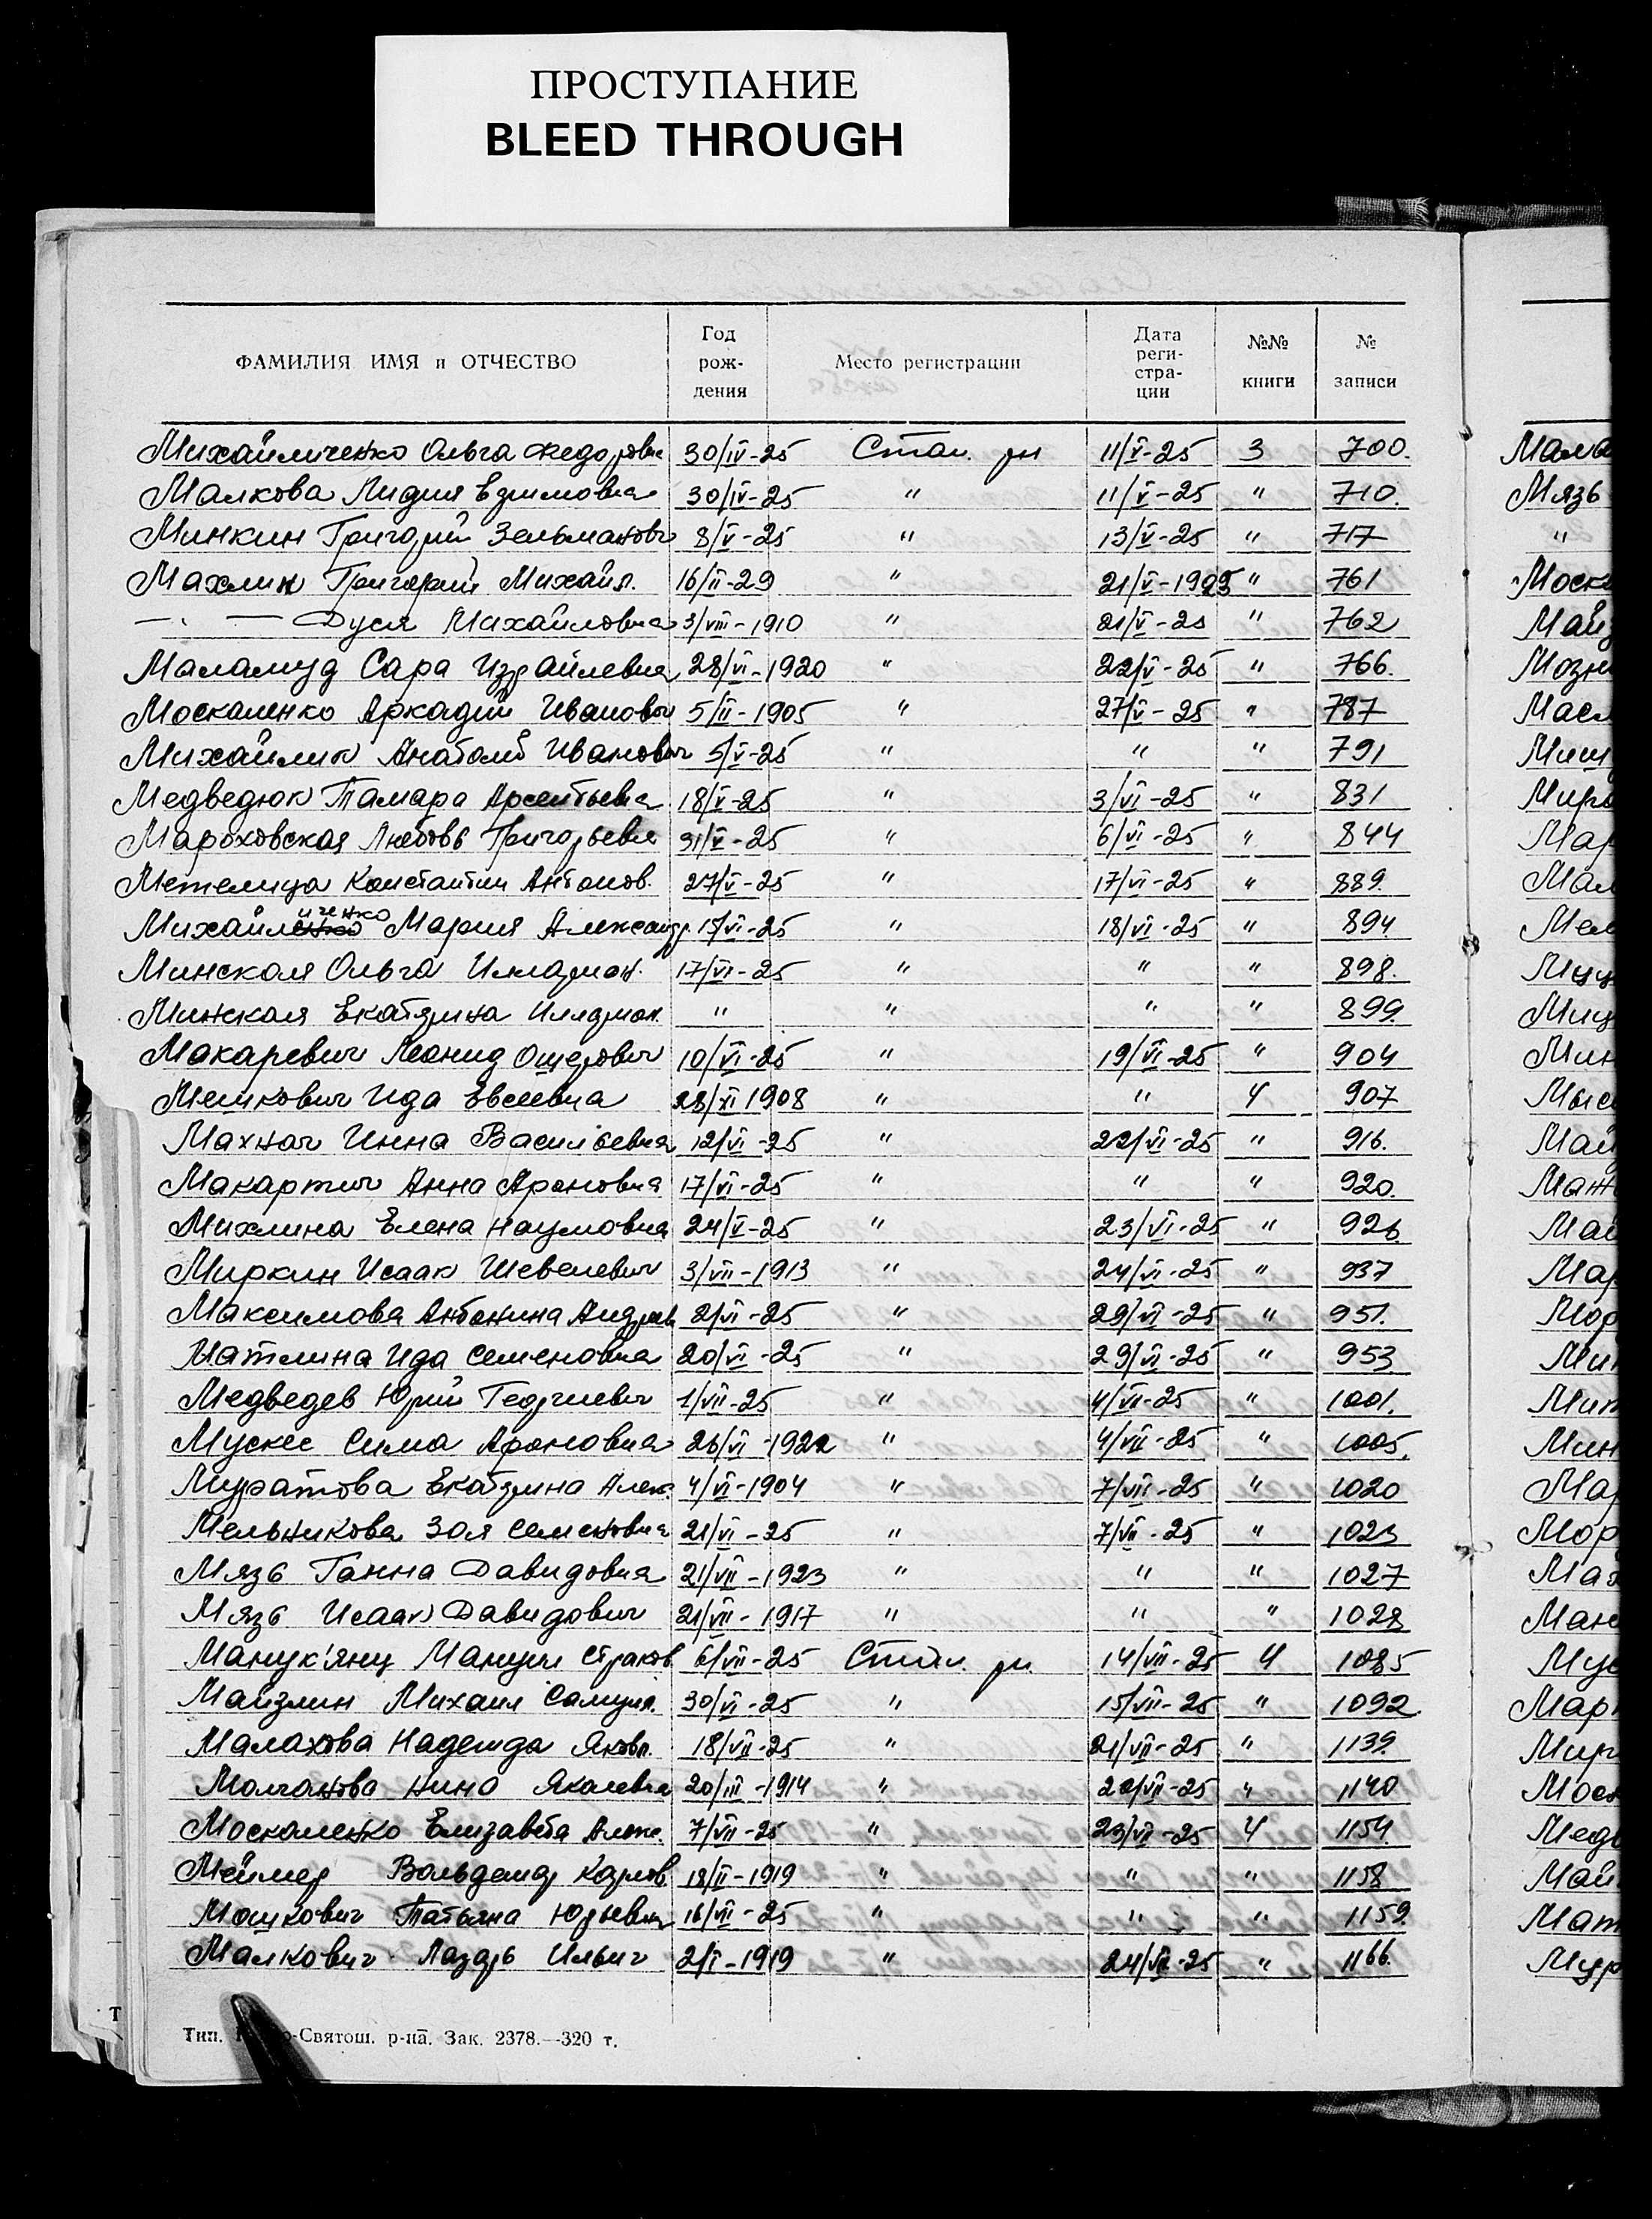 ПРОСТУПАНИЕ
BLEED THROUGH
ФАМИЛИЯ ИМЯ и ОТЧЕСТВО Год рождения Место регистрации Дата реги-стра-ции №№ книги № записи
Михайличенко Ольга Федоровна 30/IV-25 Стал. рн 11/V-25 3 700.
Малкова Лидия Ефимовна 30/IV-25 " 11/V-25 " 710.
Минкин Григорий Зельманович 8/V-25 " 13/V-25 " 717
Махлин Григорий Михайл. 16/II-29 " 21/V-1925 " 761
—"— Дуся Михайловна 3/VIII-1910 " 21/V-25 " 762
Маламуд Сара Израйлевна 28/VI-1920 " 22/V-25 " 766.
Москаленко Аркадий Иванович 5/II-1905 " 27/V-25 " 787
Михайлик Анатолий Иванович 5/V-25 " " " 791
Медведюк Тамара Арсентьевна 18/V-25 " 3/VI-25 " 831
Мароховская Любовь Григорьевна 31/V-25 " 6/VI-25 " 844
Метелица Константин Антонов. 27/V-25 " 17/VI-25 " 889.
Михайличенко Мария Александр. 15/VI-25 " 18/VI-25 " 894
Минская Ольга Илларион. 17/VI-25 " " " 898.
Минская Екатерина Илларион. " " " " 899.
Макаревич Леонид Ошерович 10/VI-25 " 19/VI-25 " 904
Мешкович Ида Евсеевна 28/XI 1908 " " 4 907
Махнач Инна Васильевна 12/VI-25 " 22/VI-25 " 916.
Макартич Анна Ароновна 17/VI-25 " " " 920.
Михлина Елена Наумовна 24/V-25 " 23/VI-25 " 926.
Миркин Исаак Шевелевич 3/VII-1913 " 24/VI-25 " 937
Максимова Антонина Андреев 2/VI-25 " 29/VI-25 " 951.
Матлина Ида Семеновна 20/VI-25 " 29/VI-25 " 953
Медведев Юрий Георгиевич 1/VII-25 " 4/VII-25 " 1001.
Мускес Сима Ароновна 26/VI-1922 " 4/VII-25 " 1005.
Муратова Екатерина Алек. 4/VI-1904 " 7/VII-25 " 1020
Мельникова Зоя Семеновна 21/VI-25 " 7/VII-25 " 1023
Мязь Ганна Давидовна 21/VII-1923 " " " 1027
Мязь Исаак Давидович 21/VII-1917 " " " 1028
Манук'янц Мануил 6/VII-25 Стал. рн 14/VII-25 4 1085
Майзлин Михаил Самуил. 30/VI-25 " 15/VII-25 " 1092.
Малахова Надежда Яковл. 18/VII-25 " 21/VII-25 " 1139.
Молчанова Нина Яковлевна 20/III-1914 " 22/VII-25 " 1140
Москаленко Елизавета Алекс. 7/VII-25 " 23/VII-25 4 1154.
Меймер Вольдемар Карлов. 18/II-1919 " " " 1158
Мошкович Татьяна Юрьевна 16/VII-25 " " " 1159.
Малкович Лазарь Ильич 2/I-1919 " 24/VII-25 " 1166.
Мязь
"
Тип. -Святош. р-на. Зак. 2378.—320 т.